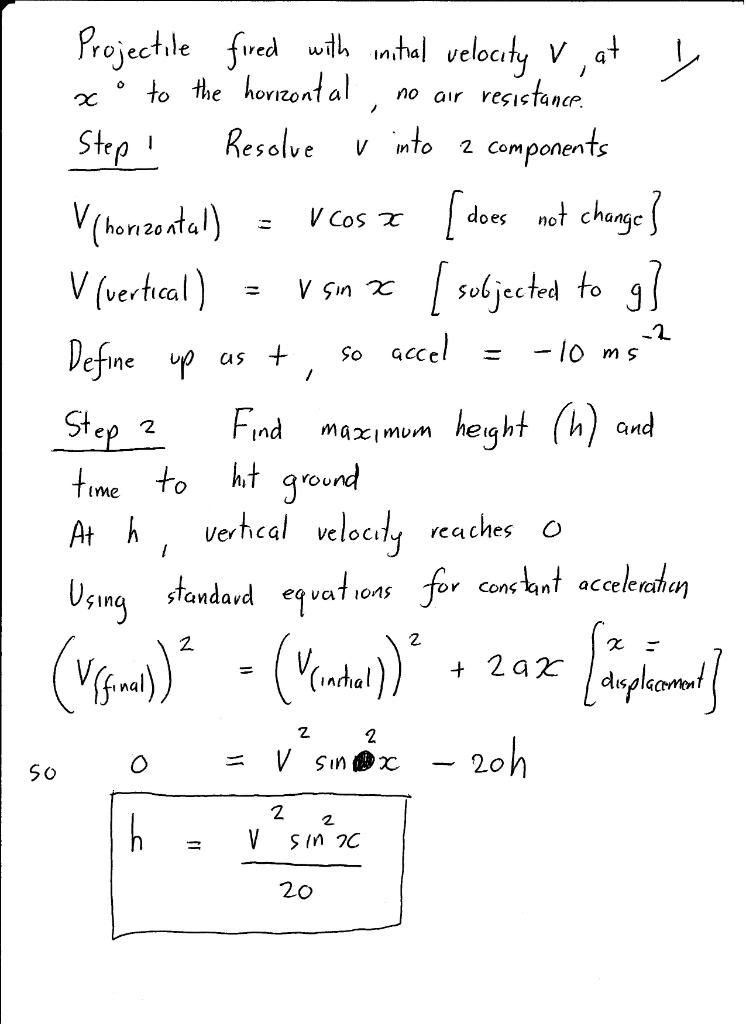 Projectile fired with initial velocity v, at 1/
x° to the horizontal, no air resistance.
Step 1 Resolve v into 2 components
V(horizontal) = v cos x [does not change]
V(vertical) = v sin x [subjected to g]
Define up as +, so accel = -10 ms⁻²
Step 2 Find maximum height (h) and
time to hit ground
At h, vertical velocity reaches 0
Using standard equations for constant acceleration
(V(final))² = (V(initial))² + 2ax [x = displacement]
so 0 = v² sin² x - 20h
h = v² sin² x / 20